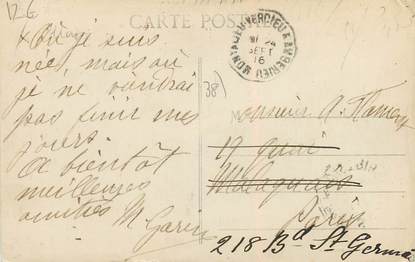 126
CARTE POSTALE
MONTALIEU-VERCIEU A AMBERIEU
24
SEPT
16
x Où je suis
née, mais où
je ne voudrai
pas finir mes
jours.
A bientôt
meilleures
amitiés
M Garin
38)
Monsieur A.
19 quai
Malaquais
Paris
218 Bd St Germain